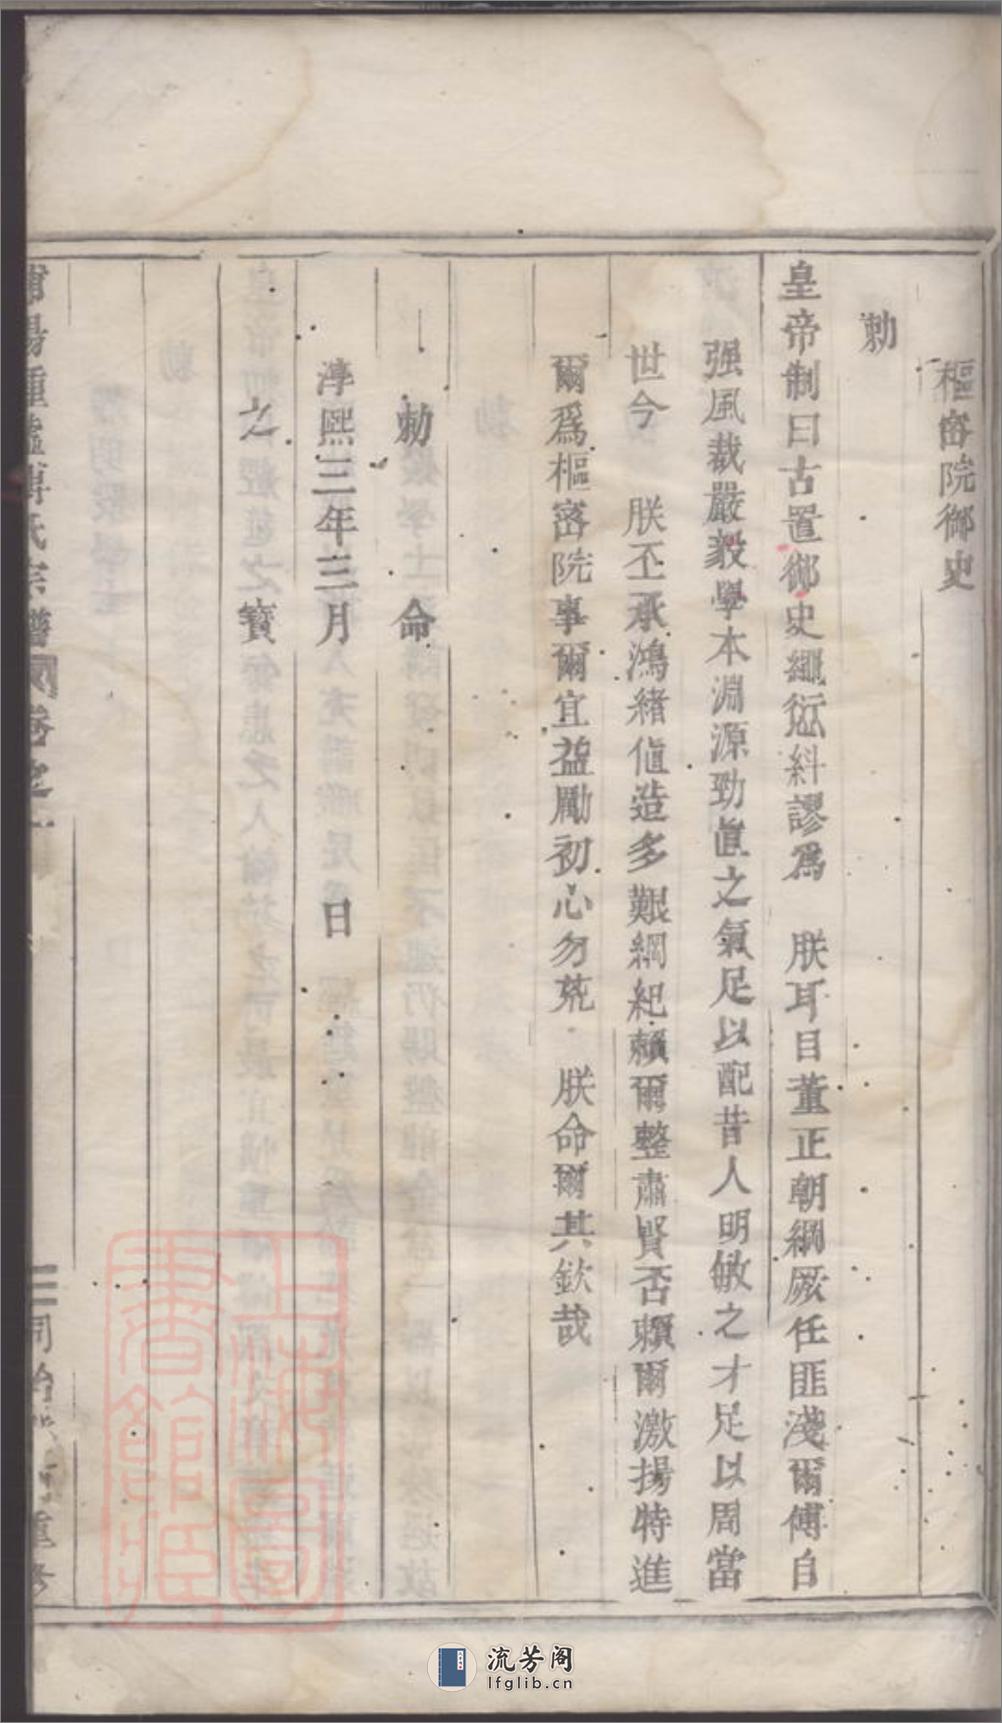 樞密院御史
勅
皇帝制曰古置御史繩愆糾謬爲 朕耳目董正朝綱厥任匪淺爾傅自
强風裁嚴毅學本淵源勁直之氣足以配昔人明敏之才足以周當
世今 朕丕承鴻緒值造多艱綱紀賴爾整肅賢否賴爾激揚特進
爾爲樞密院事爾宜益勵初心勿荒 朕命爾其欽哉
勅 命
淳熙三年三月 日
之 寶
陽 墟傅氏宗譜 卷之一 三 同治 重修
上海圖書館藏
流芳阁
lfglib.cn